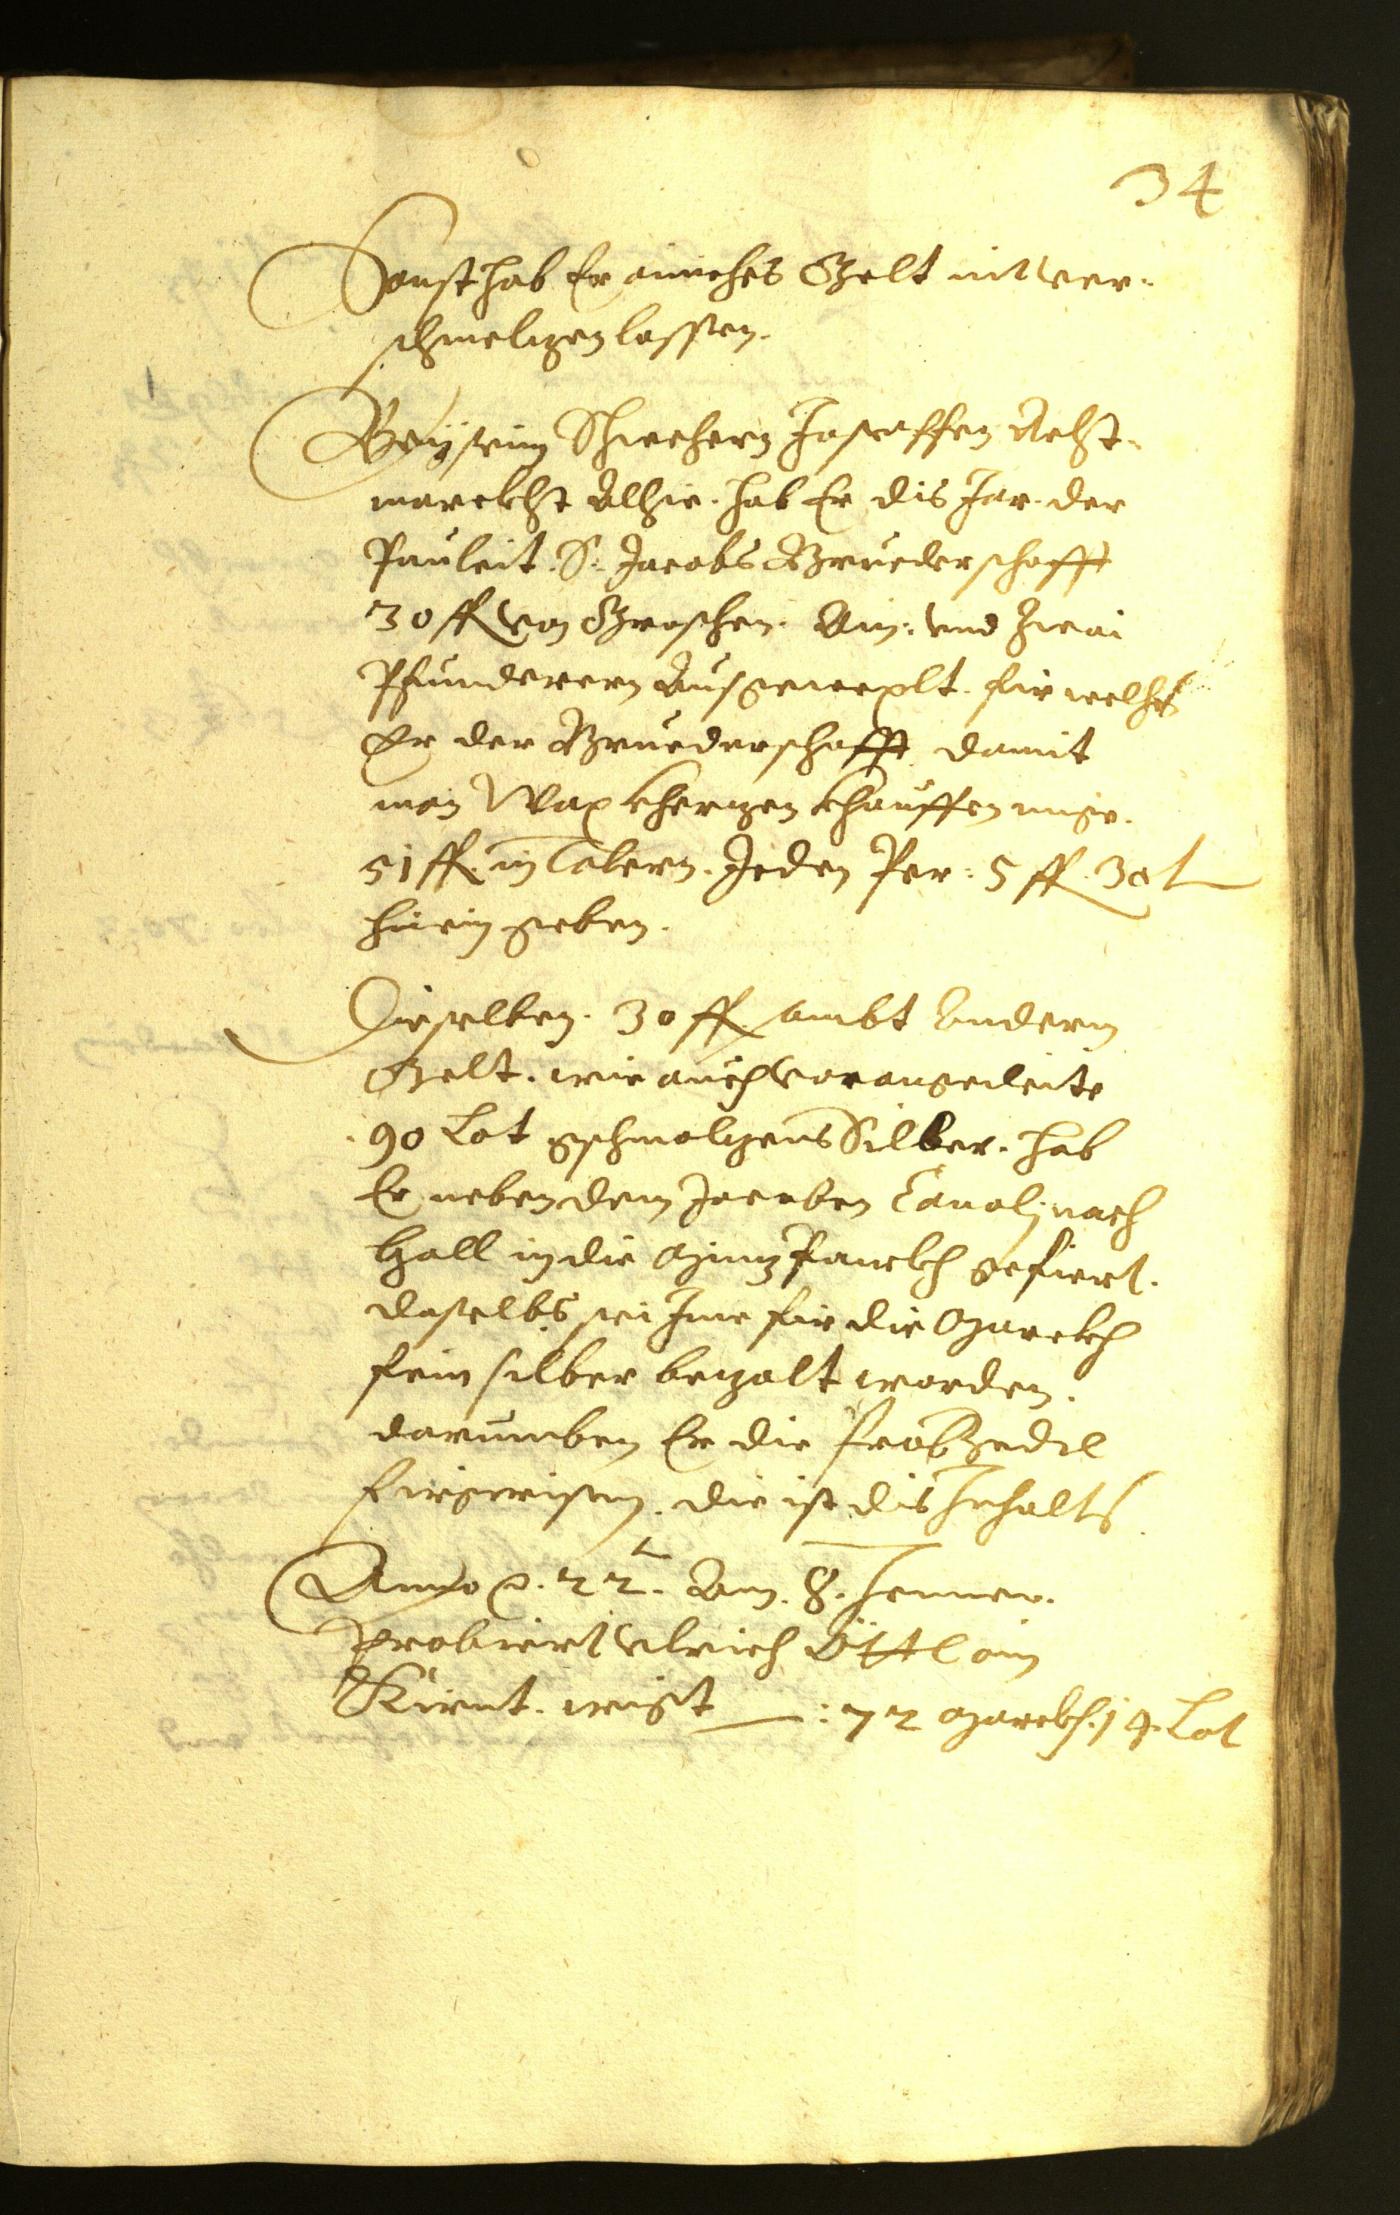 34
Sonst hab Er ainiches Gelt nit ver-
schmeltzen lassen.
Bey seim Schwehern
marckht Alhie. hab Er dis Jar der
S: Jacobs Bruederschafft
30 fl von Groschen. Ain: und Zwai
Pfunderern Ausgewexlt. für welhes
Er der Bruederschafft damit
man Wax Kherzen khauffen müge.
51 fl. in Talern. Jeden Per: 5 fl. 30 k
hinein geben.
Dieselben. 30 fl sambt Andern
Gelt. wie auch vorangedeite
90 Lot gschmolzens Silber. hab
Er neben dem Jacoben nach
Hall in die Münz Panckh gefiert.
daselbs sei Ime für die Marckh
fein silber bezalt worden.
darumben Er die Probzedl
fürgewisen. die ist dis Inhalts
Anno 22. Am. 8. Jenner.
Probiert Ulrich Öttl ain
Kirnt. wigt : 72 Marckh. 14. Lot